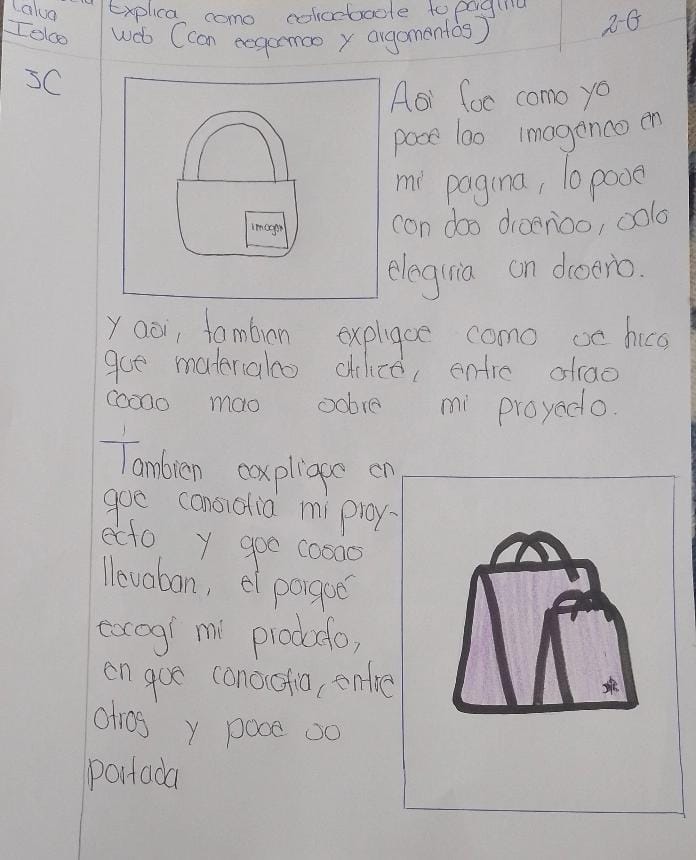 Explica como estructuraste tu pagina
Islas web (con esquemas y argumentos) 2-G
Asi fue como yo
puse las imagenes en
mi pagina, lo puse
con dos diseños, solo
elegiria un diseño.
imagen
Y asi, tambien explique como se hizo,
que materiales utilicé, entre otras
cosas mas sobre mi proyecto.
Tambien explique en
que consistia mi proy-
ecto y que cosas
llevaban, el porqué
escogí mi producto,
en que consistia, entre
otros y puse su
portada